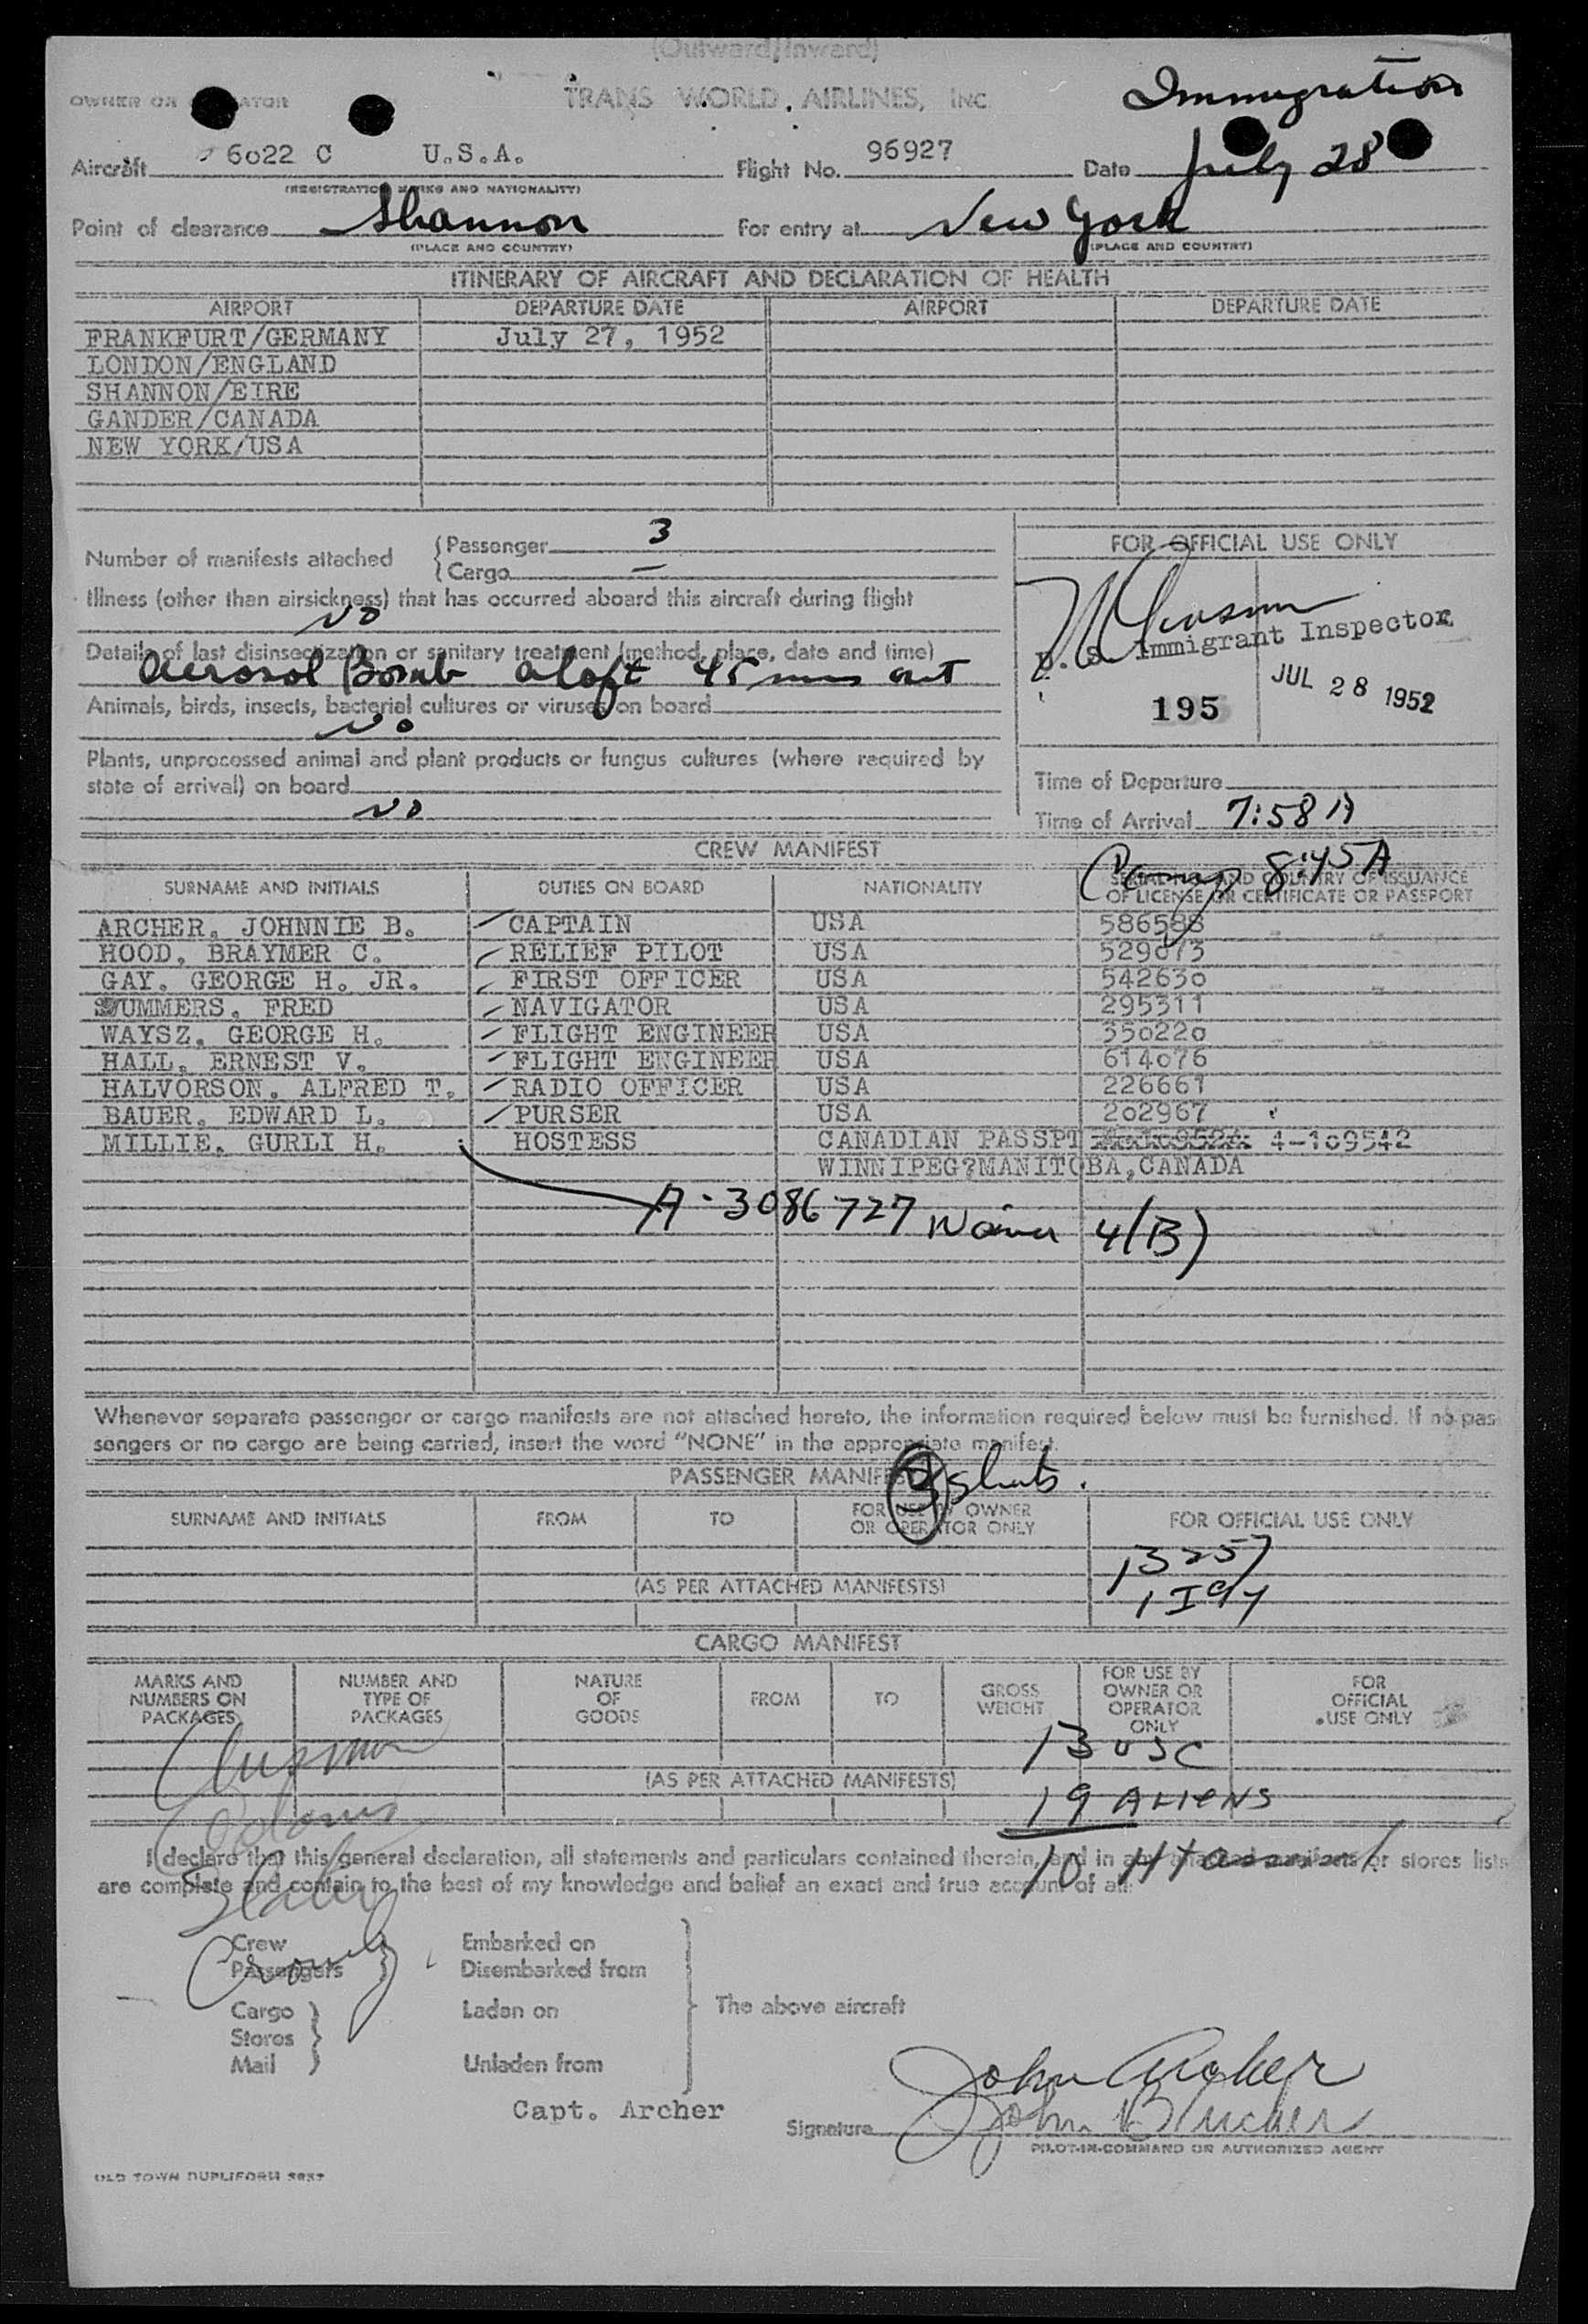 (Outward/Inward)
OWNER OR ATOR TRANS WORLD AIRLINES, INC Immigration
Aircraft 6022 C U.S.A. Flight No. 96927 Date July 28
(REGISTRATION MARKS AND NATIONALITY)
Point of clearance Shannon For entry at New York
(PLACE AND COUNTRY) (PLACE AND COUNTRY)
ITINERARY OF AIRCRAFT AND DECLARATION OF HEALTH
AIRPORT DEPARTURE DATE AIRPORT DEPARTURE DATE
FRANKFURT/GERMANY July 27, 1952
LONDON/ENGLAND
SHANNON/EIRE
GANDER/CANADA
NEW YORK/USA
Number of manifests attached
Passenger 3
Cargo —
FOR OFFICIAL USE ONLY
Illness (other than airsickness) that has occurred aboard this aircraft during flight
NO
U. S. Immigrant Inspector
Details of last disinsectization or sanitary treatment (method, place, date and time)
Aerosol Bomb aloft 45 mins out
JUL 28 1952
195
Animals, birds, insects, bacterial cultures or viruses on board
NO
Plants, unprocessed animal and plant products or fungus cultures (where required by
state of arrival) on board
NO
Time of Departure
Time of Arrival 7:58 A
8:45 A
CREW MANIFEST
SURNAME AND INITIALS DUTIES ON BOARD NATIONALITY SERIAL NO. AND COUNTRY OF ISSUANCE
OF LICENSE OR CERTIFICATE OR PASSPORT
ARCHER, JOHNNIE B. CAPTAIN USA 586588
HOOD, BRAYMER C. RELIEF PILOT USA 529073
GAY, GEORGE H. JR. FIRST OFFICER USA 542630
SUMMERS, FRED NAVIGATOR USA 295311
WAYSZ, GEORGE H. FLIGHT ENGINEER USA 350220
HALL, ERNEST V. FLIGHT ENGINEER USA 614076
HALVORSON, ALFRED T. RADIO OFFICER USA 226661
BAUER, EDWARD L. PURSER USA 202967
MILLIE, GURLI H. HOSTESS CANADIAN PASSPT 4-109542
WINNIPEG?MANITOBA,CANADA
A-3086727 Waiver 4(B)
Whenever separate passenger or cargo manifests are not attached hereto, the information required below must be furnished. If no pas
sengers or no cargo are being carried, insert the word "NONE" in the appropriate manifest.
PASSENGER MANIFEST 3 sheets.
SURNAME AND INITIALS FROM TO FOR USE BY OWNER
OR OPERATOR ONLY FOR OFFICIAL USE ONLY
(AS PER ATTACHED MANIFESTS)
CARGO MANIFEST
MARKS AND
NUMBERS ON
PACKAGES
NUMBER AND
TYPE OF
PACKAGES
NATURE
OF
GOODS
FROM
TO
GROSS
WEIGHT
FOR USE BY
OWNER OR
OPERATOR
ONLY
FOR
OFFICIAL
USE ONLY
13 USC
(AS PER ATTACHED MANIFESTS)
19 ALIENS
I declare that this general declaration, all statements and particulars contained therein, and in any attached manifests or stores lists
are complete and contain to the best of my knowledge and belief an exact and true account of all:
Crew Embarked on
Passengers Disembarked from
Cargo Laden on The above aircraft
Stores
Mail Unladen from
John Archer
Capt. Archer
Signature John B Archer
PILOT-IN-COMMAND OR AUTHORIZED AGENT
OLD TOWN DUPLIFORM